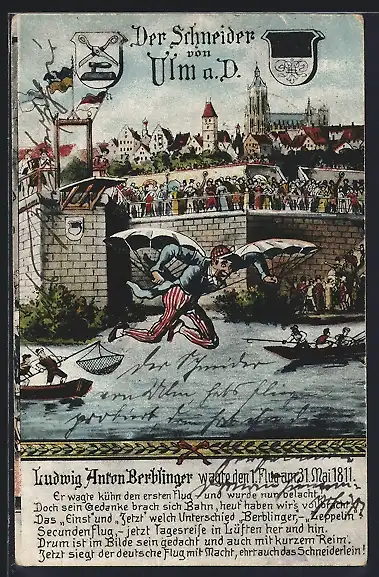 Der Schneider
von
Ulm a.D.
der Schneider
von Ulm
Ludwig Anton Berblinger wagte den 1. Flug am 31. Mai 1811.
Er wagte kühn den ersten Flug und wurde nun belacht,
Doch sein Gedanke brach sich Bahn, heut haben wir's vollbracht.
Das „Einst" und „Jetzt" welch Unterschied „Berblinger„ – „Zeppelin"
Secundenflug, – jetzt Tagesreise in Lüften her und hin.
Drum ist im Bilde sein gedacht und auch mit kurzem Reim.
Jetzt siegt der deutsche Flug mit Macht, ehrt auch das Schneiderlein!